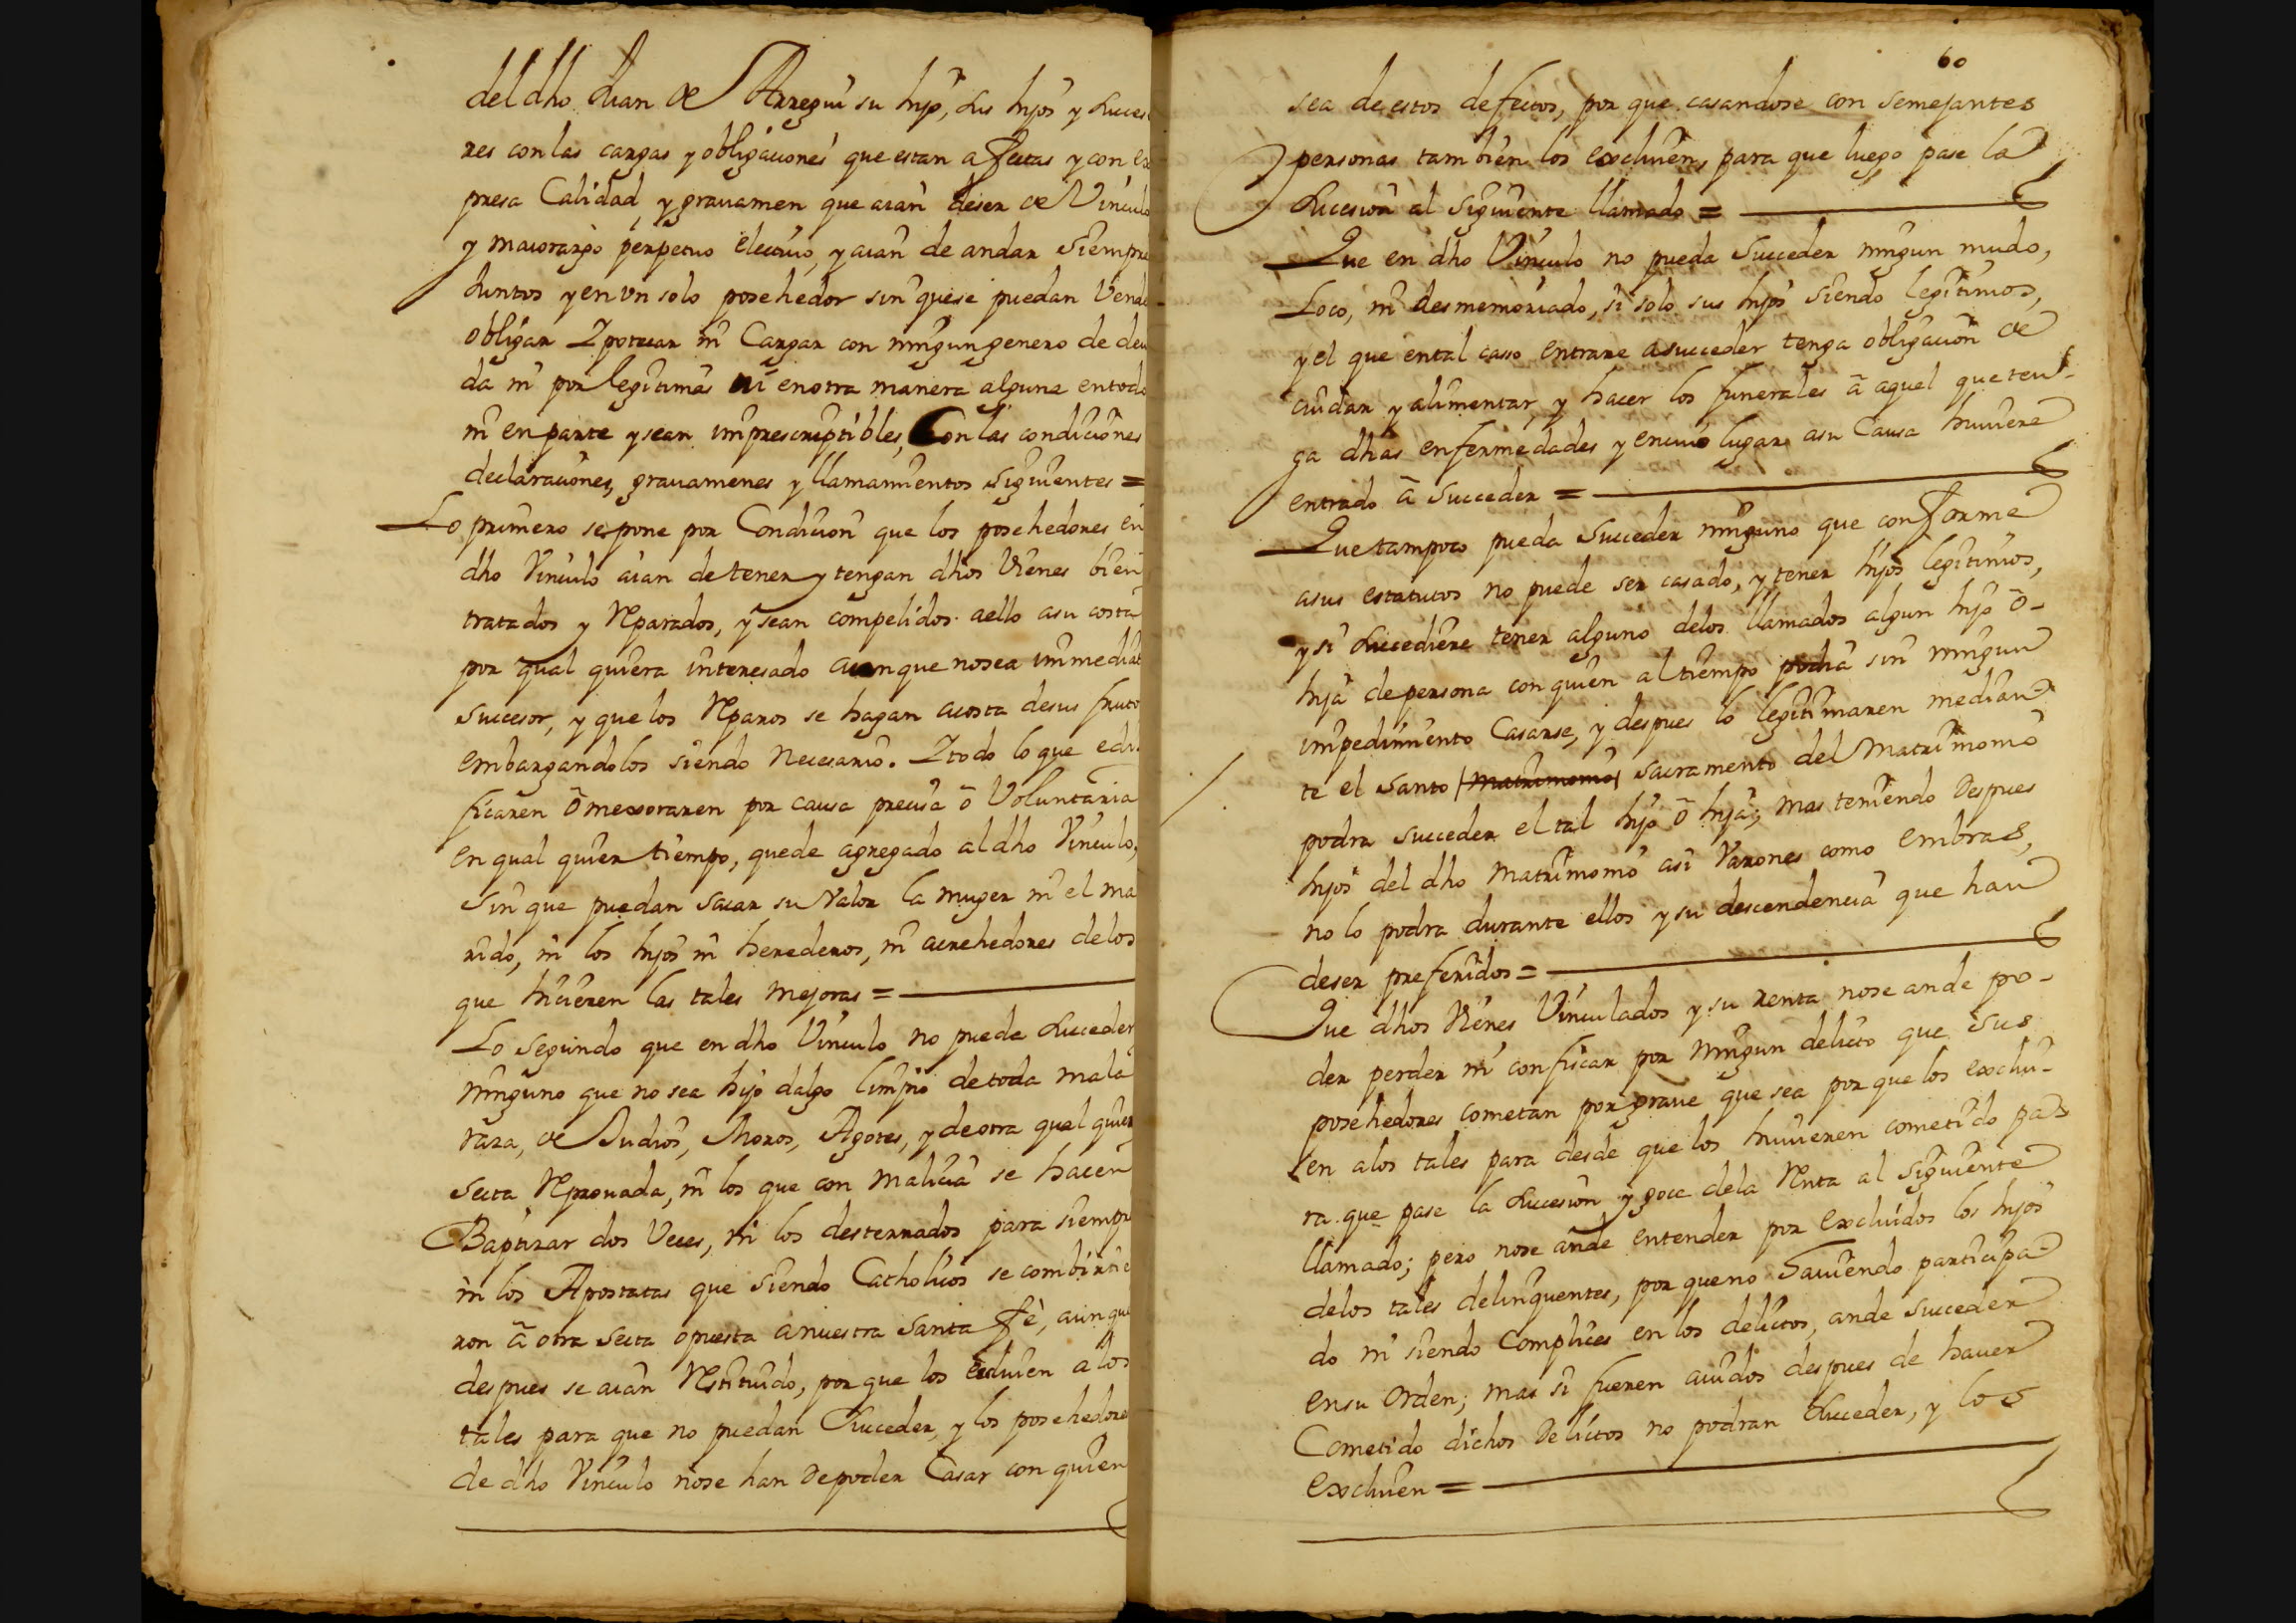 del dho Juan de Arregui su hijo, sus hijos y succes
res con las cargas y obligaciones que estan afectas y con ex
presa Calidad, y grauamen que aian deser de Vinculo
y maiorazgo perpetuo electiuo, y aian de andar siempre
Juntos y en vn solo posehedor sin que se puedan Vende
obligar Ypotecar ni Cargar con ningun genero de deu
da ni por legitimas ni en otra manera alguna en todo
ni en parte y sean imprescriptibles, Con las condiciones
declaraciones, grauamenes y llamamientos siguientes =
Lo primero se pone por Condicion que los posehedores en
dho Vinculo aian de tener y tengan dhos Vienes bien
tratados y Reparados, y sean compelidos aello asu costa
por qual quiera interesado aunque nosea immediat
succesor, y que los Reparos se hagan acosta desus fruto
embargandolos siendo necesario. Y todo lo que edi
ficaren ô mexoraren por causa precisa ô Voluntaria
en qual quier tiempo, quede agregado al dho Vinculo,
Sin que puedan sacar su Valor la muger ni el ma
rido, ni los hijos ni herederos, ni acrehedores delos
que hicieren las tales mejoras =
Lo segundo que en dho Vinculo no pueda succeder
ninguno que no sea hijo dalgo limpio de toda mala
raza, de Judios, Moros, Agotes, y de otra qual quier
secta Reprouada, ni los que con malicia se hacen
Baptizar dos Veces, ni los desterrados para siempre
ni los Apostatas que siendo Catholicos se combirtie
ron â otra secta opuesta anuestra santa fè, aunque
despues se aian Restituido, por que los excluien a los
tales para que no puedan succeder, y los posehedores
de dho Vinculo nose han de poder Casar con quien
60
sea de estos defectos, por que casandose con semejantes
personas tambien los excluien, para que luego pase la
succesion al siguiente llamado =
Que en dho Vinculo no pueda succeder ningun mudo,
Loco, ni desmemoriado, si solo sus hijos siendo legitimos,
y el que en tal caso entrare asucceder tenga obligacion de
cuidar y alimentar, y hacer los funerales â aquel que ten-
ga dhas enfermedades y encuio lugar asu Causa huuiere
entrado â succeder =
Que tampoco pueda succeder ninguno que conforme
asus estatutos no puede ser casado, y tener hijos legitimos,
y si succediere tener alguno delos llamados algun hijo ô-
hija de persona con quien al tiempo podia sin ningun
impedimento Casarse, y despues lo legitimaren median-
te el Santo matrimonio sacramento del Matrimonio
podra succeder el tal hijo ô hija; mas teniendo despues
hijos del dho matrimonio asi Varones como embras,
no lo podra durante ellos y su descendencia que han
deser preferidos =
Que dhos Vienes Vinculados y su renta nose ande po-
der perder ni confiscar por ningun delicto que sus
posehedores cometan por graue que sea por que los exclui-
en alos tales para desde que los huuieren cometido pa
ra que pase la succesion y goce dela Renta al siguiente
llamado; pero nose ande entender por excluidos los hijos
delos tales delinquentes, por que no hauiendo participa-
do ni siendo complices en los delictos, ande succeder
en su orden; mas si fueren auidos despues de hauer
Cometido dichos delictos no podran succeder, y los
excluien =